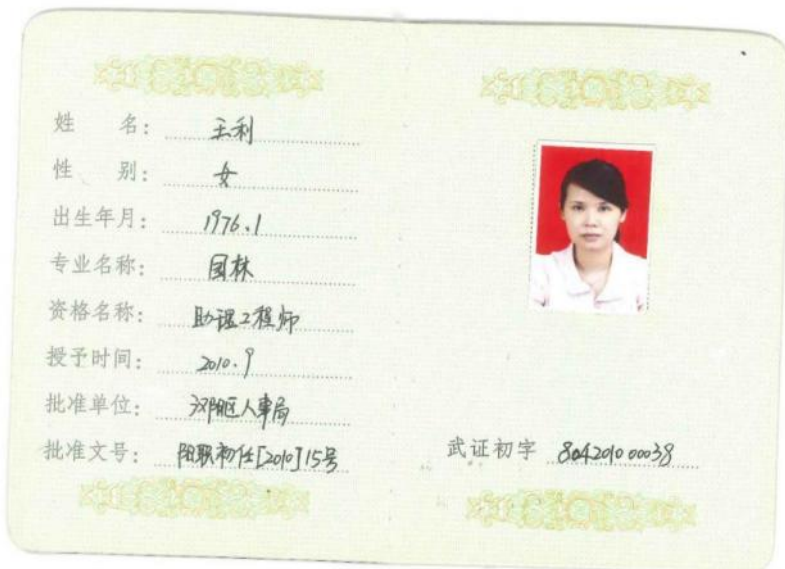 姓 名： 王利
性 别： 女
出生年月： 1976.1
专业名称： 园林
资格名称： 助理工程师
授予时间： 2010.9
批准单位： 汉阳区人事局
批准文号： 阳职初任[2010]15号
武证初字 8042010 00038